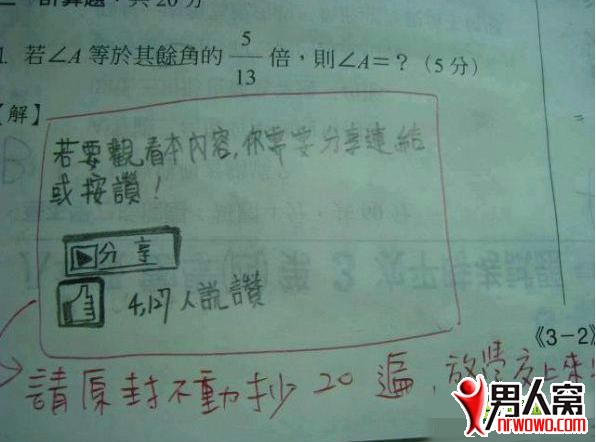 計算題：共20分
1. 若∠A 等於其餘角的 5/13 倍，則∠A＝？（5分）
【解】
若要觀看本內容,你需要分享連結
或按讚！
分享
4,127人說讚
《3-2》
請原封不動抄20遍，放學交上來
男人窝
nrwowo.com